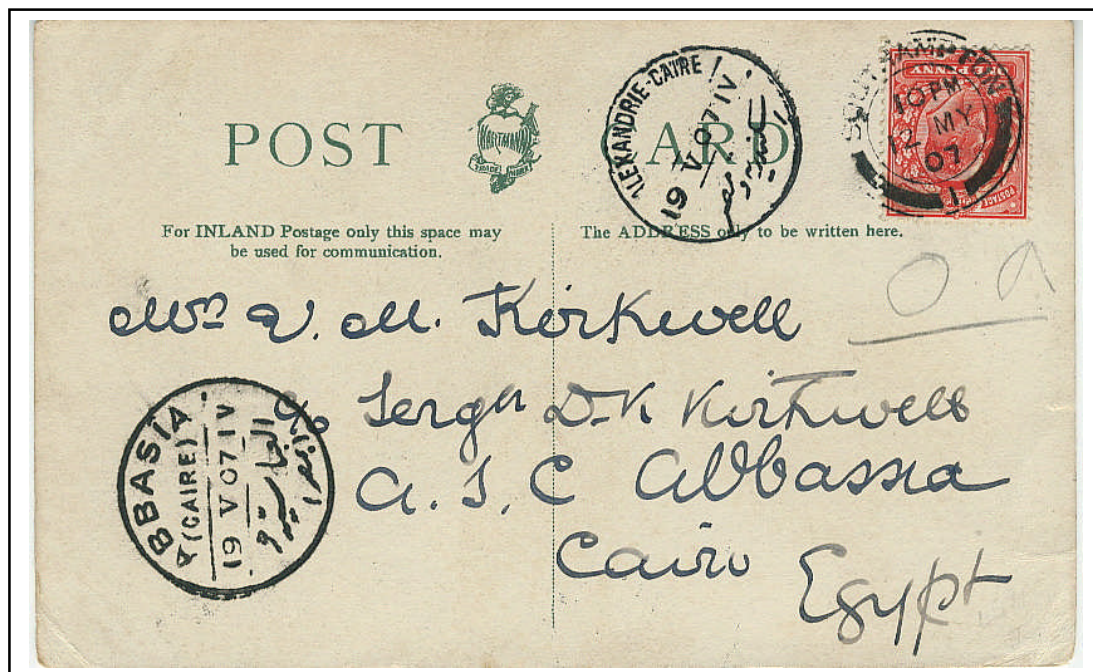 POST CARD
HARTMANN
TRADE MARK
ALEXANDRIE-CAIRE
19 V 07 IV
SOUTHAMPTON
10 PM
12 MY
07
1
PENNY
For INLAND Postage only this space may
be used for communication.
The ADDRESS only to be written here.
O A
Mrs V. M. Kirkwell
c/o Sergn D.K Kirkwell
A. S. C Abbassia
Cairo
Egypt
ABBASIA
(CAIRE)
19 V 07 IV